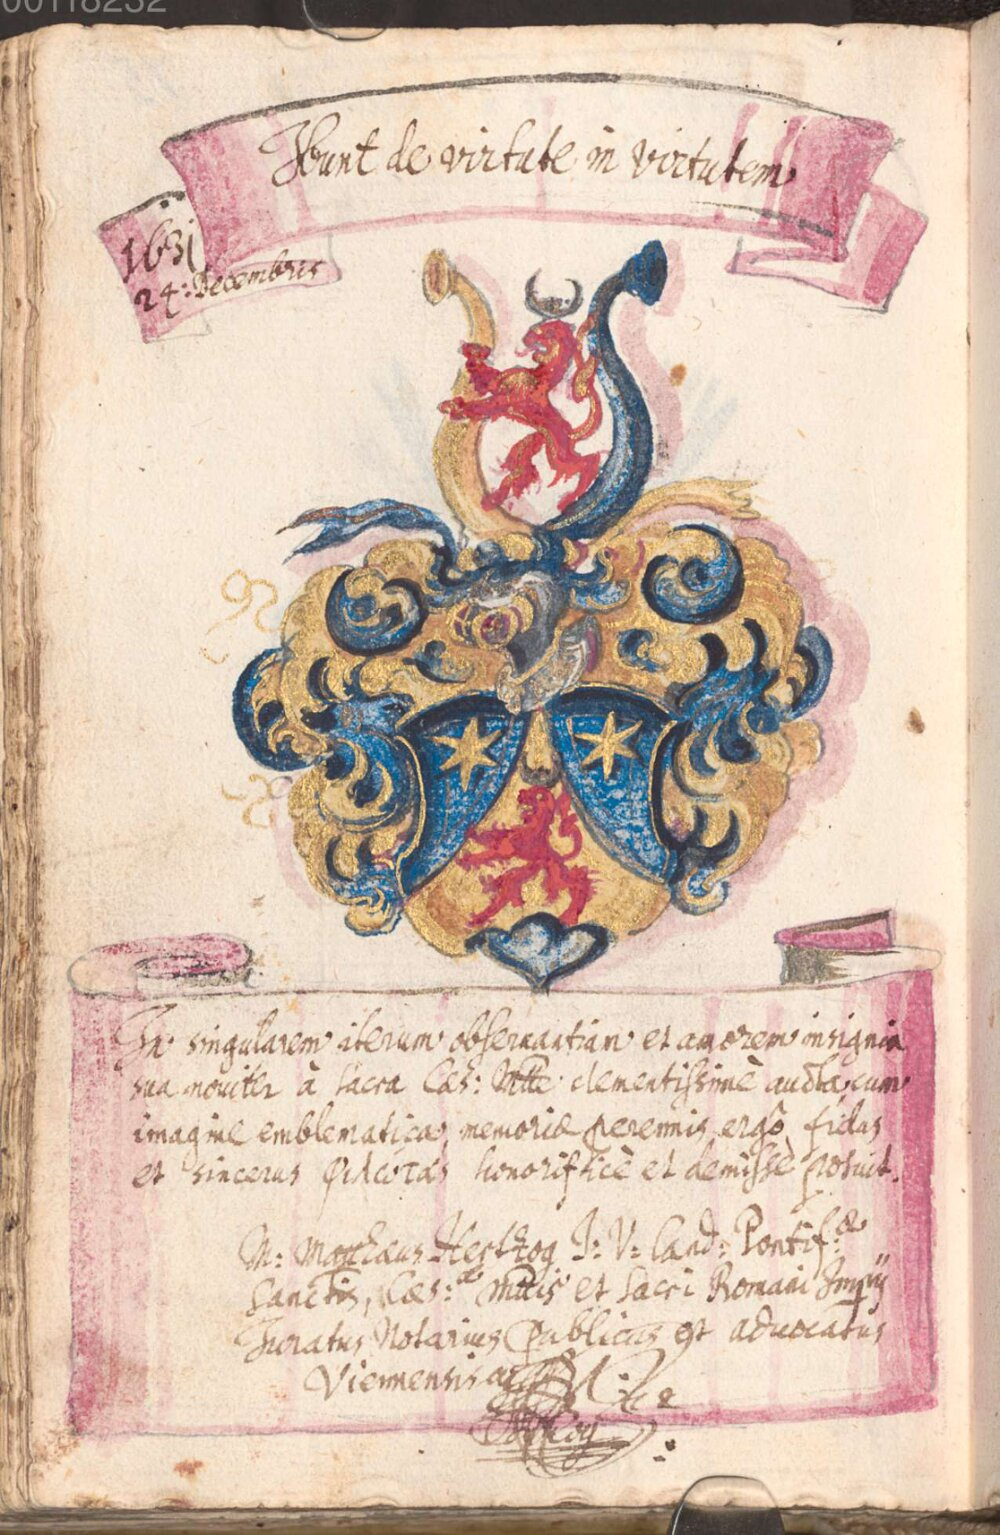 00118232
Ibunt de virtute in virtutem
1631
24: Decembris
In singularem iterum observantiam et amorem insignia
sua noviter à sacra Cæs: Mtte clementissimè aucta, cum
imagine emblematica, memoriæ perennis ergô fidus
et sincerus honorificè et demissè posuit.
M: Matthæus Hertzog I: V: Cand: Pontif:æ
Sanctis, Cæs:æ Mttis et Sacri Romani Imperij
Iuratus Notarius Publicus et advocatus
Viennensis